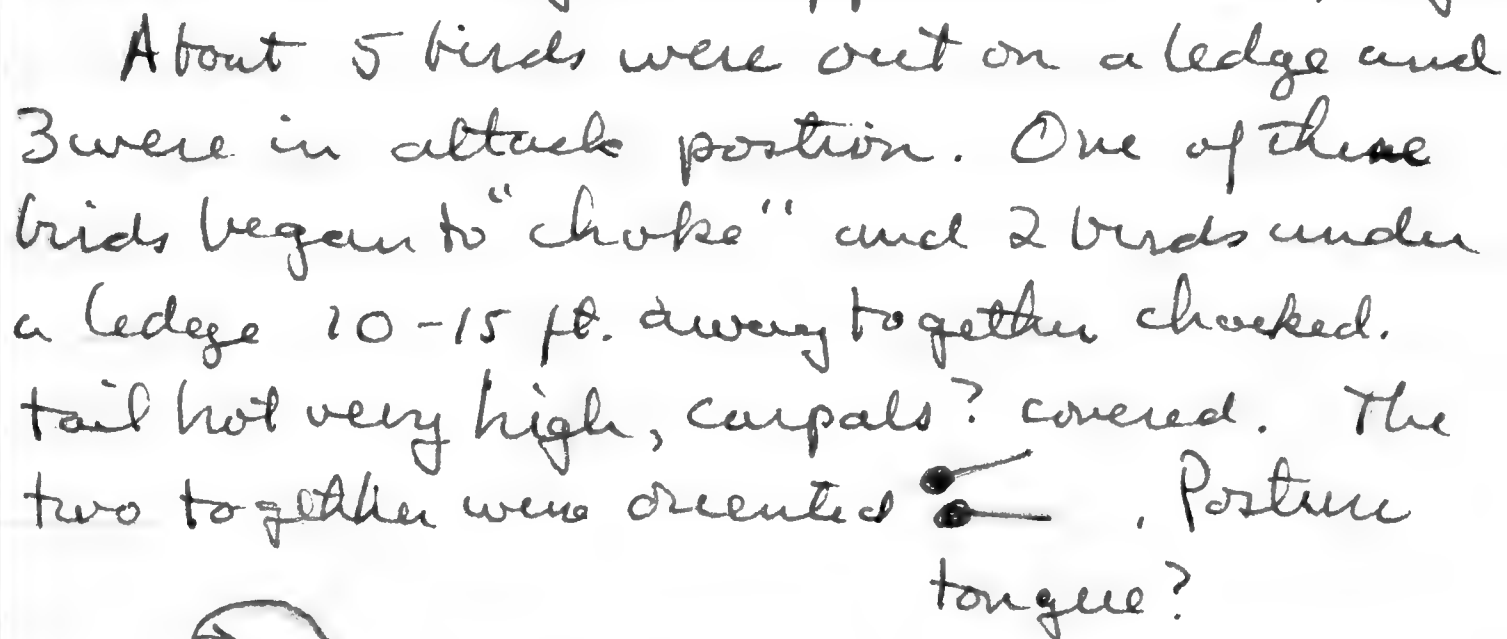 About 5 birds were out on a ledge and
3 were in attack postion. One of these
birds began to "choke" and 2 birds under
a ledge 10-15 ft. away together choked.
tail not very high, carpals? covered. The
two together were oriented . Posture
tongue?